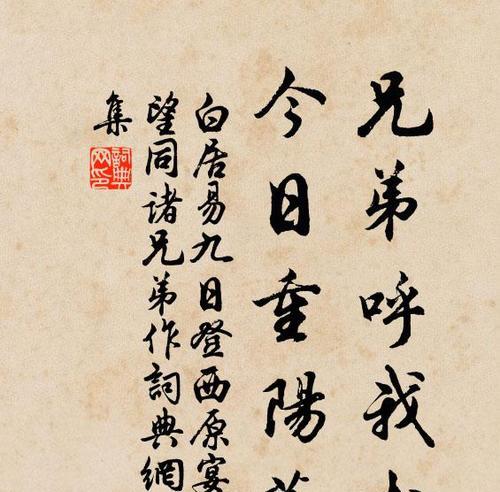 兄弟呼我
今日重陽
白居易九日登西原宴
望同諸兄弟作詞典網
集
詞典网印